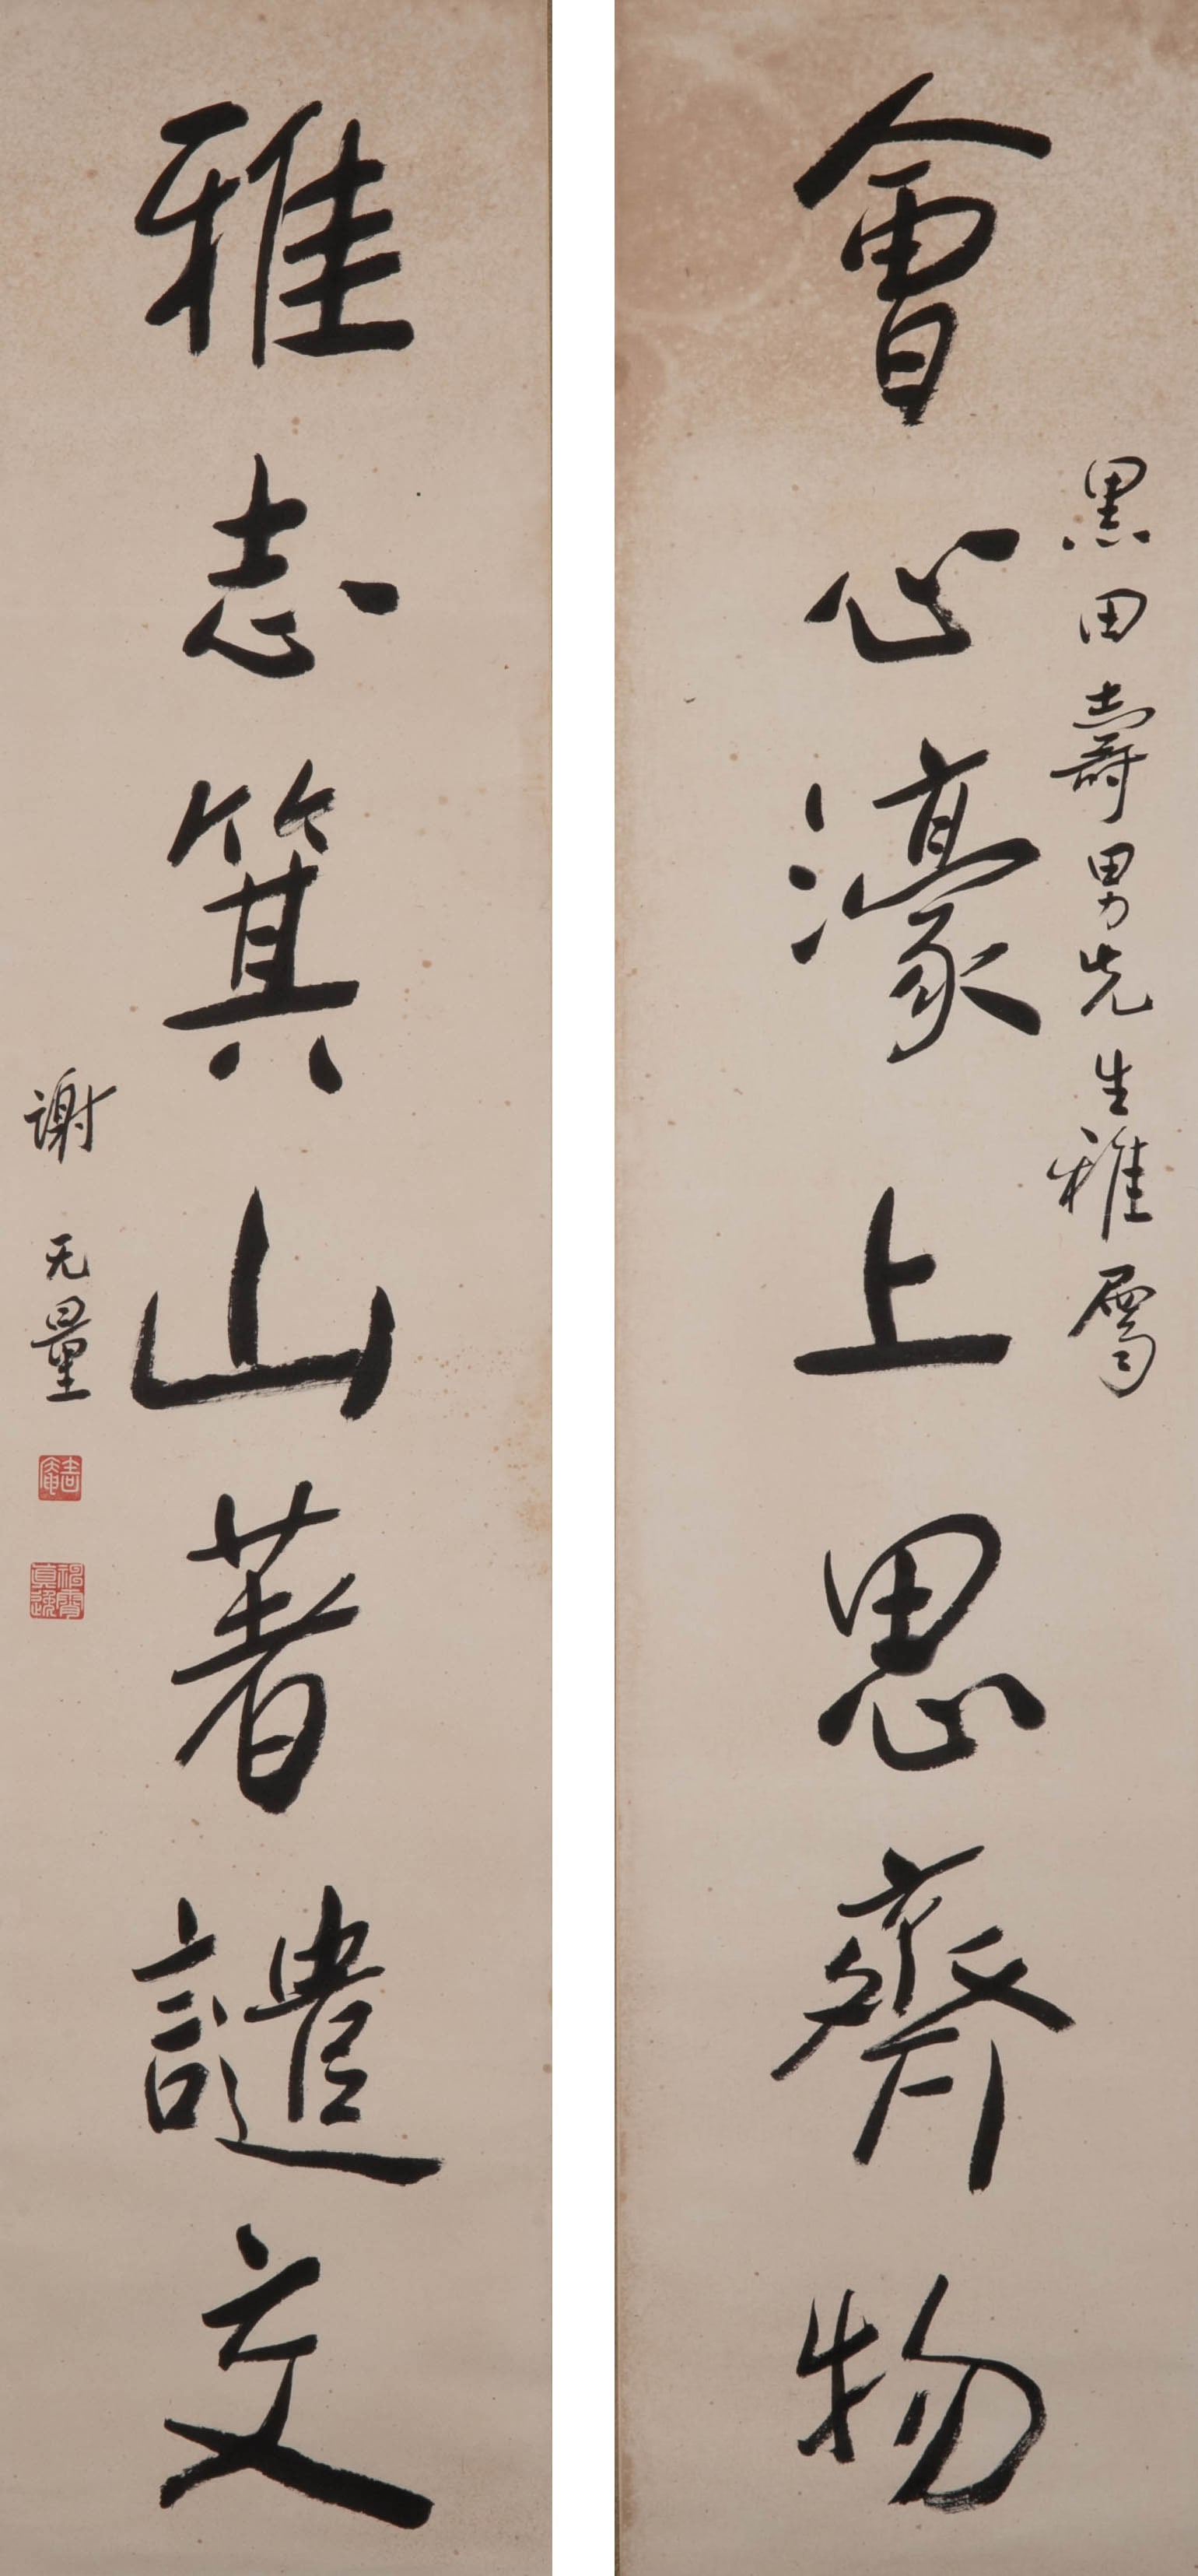 黑田壽男先生雅屬
會心濠上思齊物
雅志箕山著譴文
謝无量
嗇庵